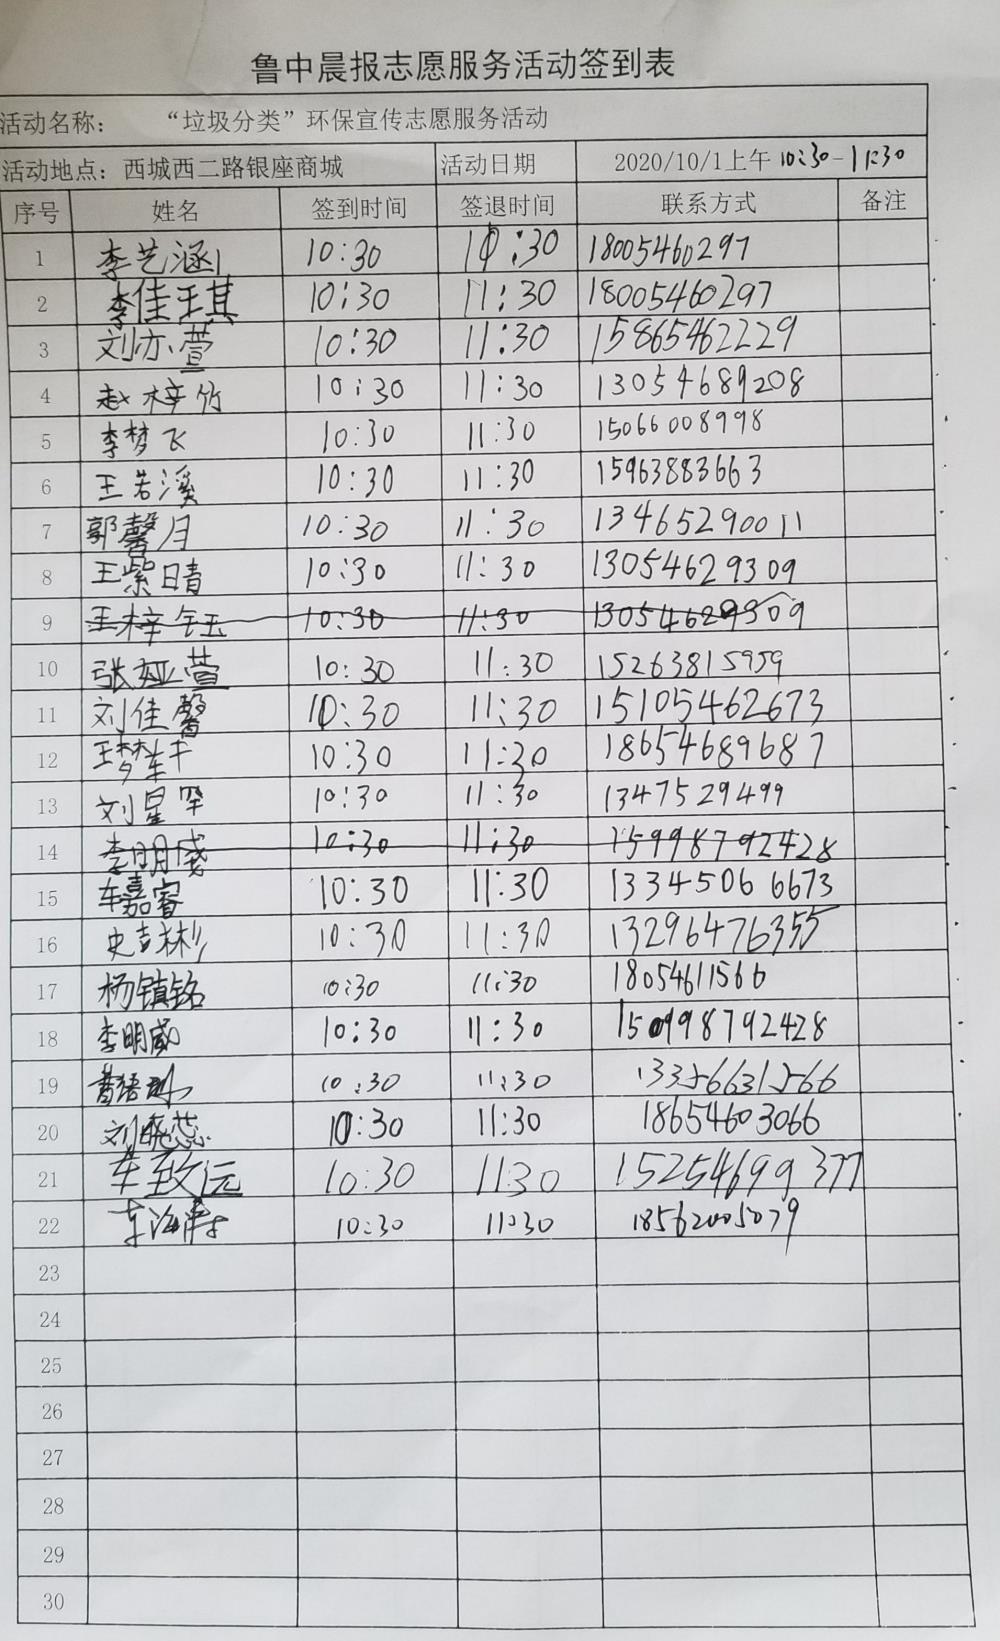 鲁中晨报志愿服务活动签到表
活动名称： “垃圾分类”环保宣传志愿服务活动
活动地点：西城西二路银座商城 活动日期 2020/10/1上午 10:30-11:30
序号 姓名 签到时间 签退时间 联系方式 备注
1 李艺涵 10:30 11:30 18005460297
2 李佳琪 10:30 11:30 18005460297
3 刘亦萱 10:30 11:30 15865462229
4 赵梓竹 10:30 11:30 13054689208
5 李梦飞 10:30 11:30 15066008998
6 王若溪 10:30 11:30 15963883663
7 郭馨月 10:30 11:30 13465290011
8 王紫晴 10:30 11:30 13054629309
9 王梓钰 10:30 11:30 13054629309
10 张娅萱 10:30 11:30 15263815959
11 刘佳馨 10:30 11:30 15105462673
12 王梦 10:30 11:30 18654689687
13 刘星罕 10:30 11:30 1347529499
14 李明 10:30 11:30 15998792428
15 车嘉睿 10:30 11:30 13345066673
16 史吉彬 10:30 11:30 13296476355
17 杨镇铭 10:30 11:30 18054611566
18 李明威 10:30 11:30 15998792428
19 10:30 11:30 13356631566
20 刘晓蕊 10:30 11:30 18654603066
21 车致远 10:30 11:30 15254699377
22 10:30 11:30 18562005079
23
24
25
26
27
28
29
30